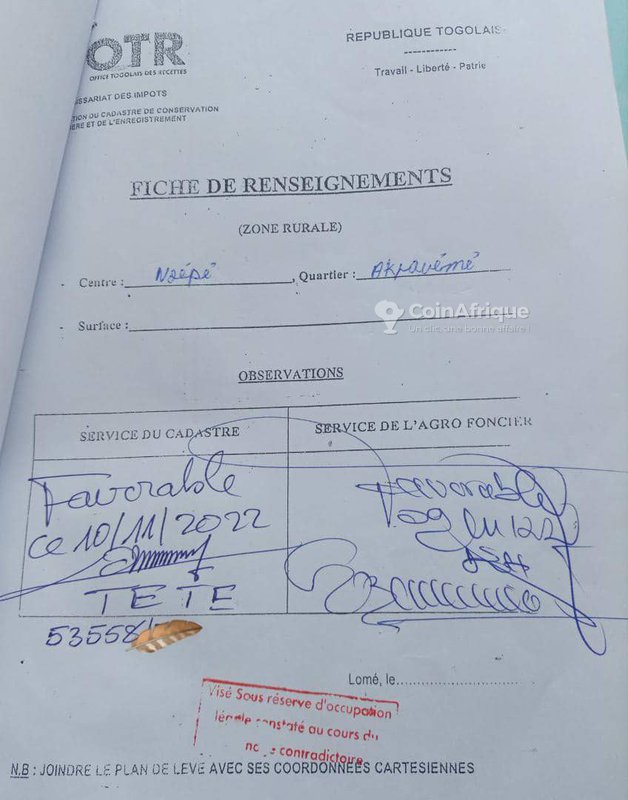 OTR
OFFICE TOGOLAIS DES RECETTES
REPUBLIQUE TOGOLAISE
------------
Travail - Liberté - Patrie
SSARIAT DES IMPOTS
TION DU CADASTRE DE CONSERVATION
IERE ET DE L'ENREGISTREMENT
FICHE DE RENSEIGNEMENTS
(ZONE RURALE)
- Centre : Noépé, Quartier : Akpavémé
- Surface :
CoinAfrique
Un clic, une bonne affaire !
OBSERVATIONS
SERVICE DU CADASTRE
SERVICE DE L'AGRO FONCIER
Favorable
ce 10/11/2022
TETE
53558/
Favorable
Lomé, le
Visé Sous réserve d'occupation
constaté au cours du
contradictoire
N.B : JOINDRE LE PLAN DE LEVE AVEC SES COORDONNEES CARTESIENNES